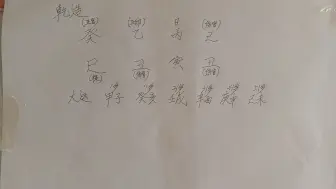 乾造
(正官) (正印) 日 (伤官)
癸 乙 丙 己
巳 丑 寅 丑
(禄) (伤官) (伤官)
大运 甲子 癸亥 壬戌 辛酉 庚申 己未